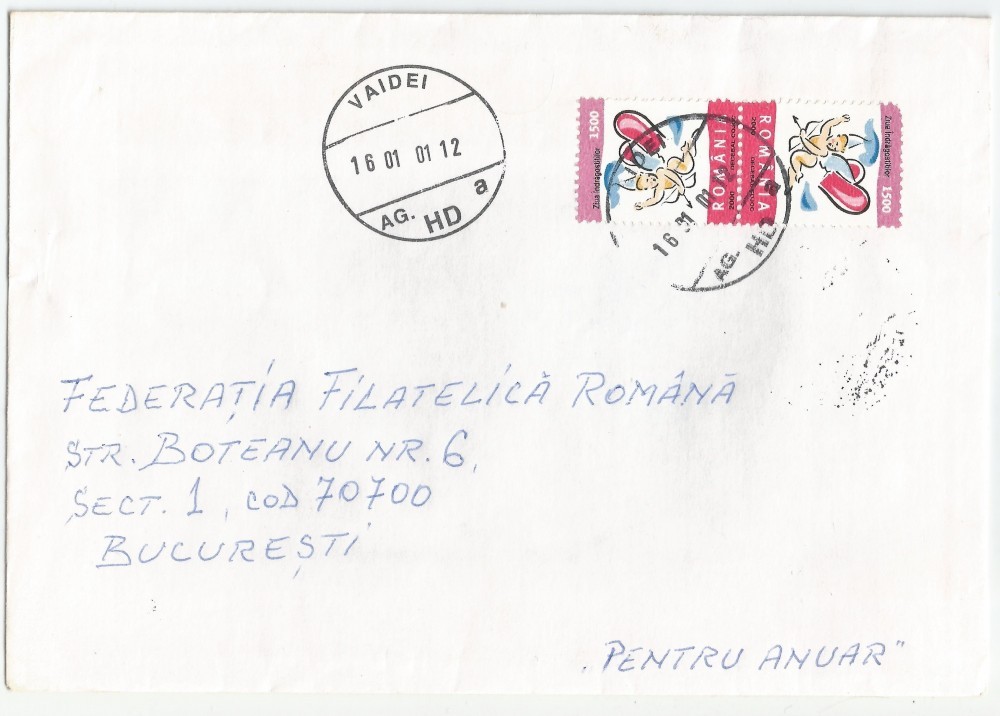 VAIDEI
16 01 01 12
AG. HD a
1500
Ziua Indragostitilor
ROMÂNIA
2000
ROMÂNIA
2000
Ziua Indragostitilor
1500
16 01 01
AG. HD a
FEDERAȚIA FILATELICĂ ROMÂNĂ
STR. BOTEANU NR. 6,
SECT. 1, COD 70700
BUCUREȘTI
„PENTRU ANUAR"